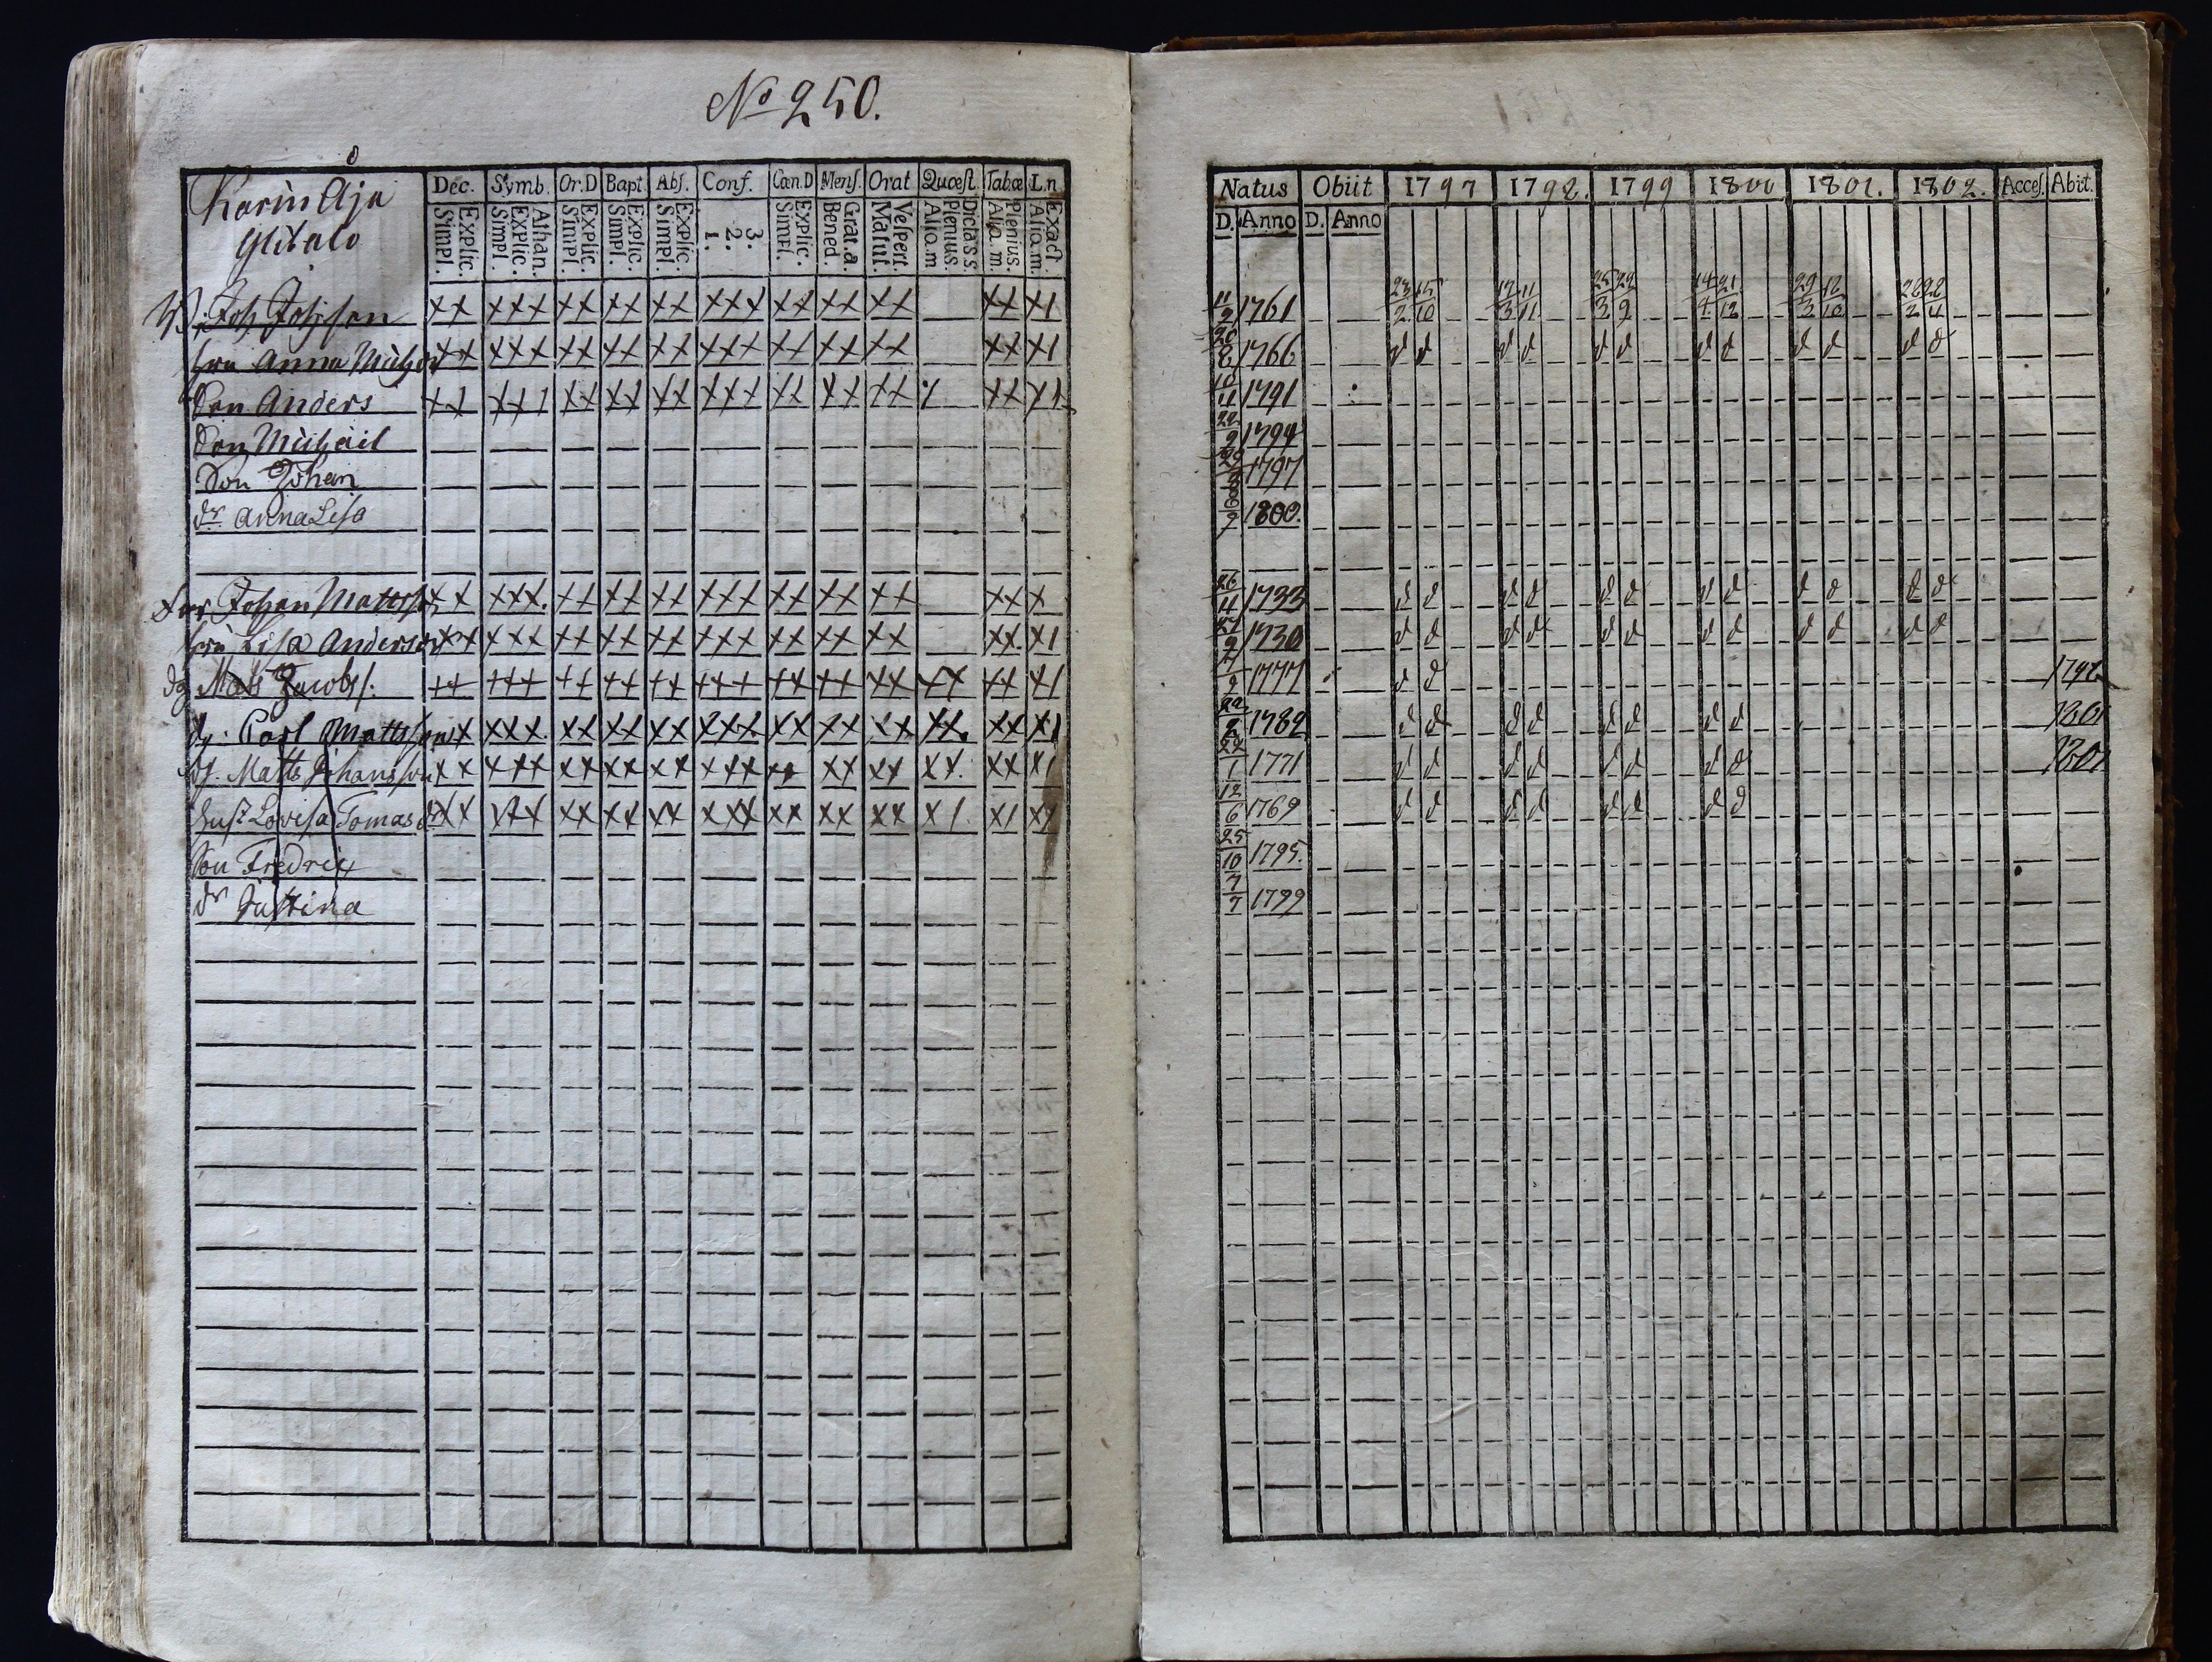 No 250.
Karin Oja
Ylitalo
Dec. Symb. Or.D Bapt. Abs. Conf. Cæn.D Mens. Orat Quæst. Tabæ L.n
Explic. Simpl. Athan. Explic. Simpl. Explic. Simpl. Explic. Simpl. Explic. Simpl. 3. 2. 1. Explic. Simpl. Grat.a. Bened. Vespert. Matut. Dicta s s. Plenius. Alio.m Plenius. Alio.m Exact. Alio.m.
Joh Johsson xx xxx xx xx xx xxx xx xx xx xx x1
hru Anna xx xxx xx xx xx xxx xx xx xx xx x1
Son Anders
Son Michail
Son Johan
dr Anna Lisa
Far Johan Mattss xx xxx. xx xx xx xxx xx xx xx xx x
hru Lisa Andersdr xx xxx xx xx xx xxx xx xx xx xx. x1
dg Mats Jacobss. xx xxx xx xx xx xxx xx xx xx xx xx x1
dg. Carl Mattsson x xxx xx xx xx xxx xx xx xx xx xx x1
dg. Matts Johansson xx xxx xx xx xx xxx xx xx xx xx. xx x1
hust Lovisa Tomasdr xx xxx xx xx xx xxx xx xx xx x1 x1 x1
Son Fredric
dr Justina
Natus Obiit 1797 1798. 1799 1800 1801. 1802. Acces. Abit.
D. Anno D. Anno
11/2 1761 23/2 15/10 12/3 11/11 25/3 29/9 14/4 21/12 29/3 18/10 28/2 22/4
20/8 1766 d d d d d d d d d d d d
10/11 1791
22/9 1794
1797
1800.
26/4 1733 d d d d d d d d d d d d
1730 d d d d d d d d d d d d
1777 d d 1798
22/2 1782 d d d d d d d d 1801
22/1 1771 d d d d d d d d 1801
12/6 1769 d d d d d d d d
25/10 1795.
7/7 1799